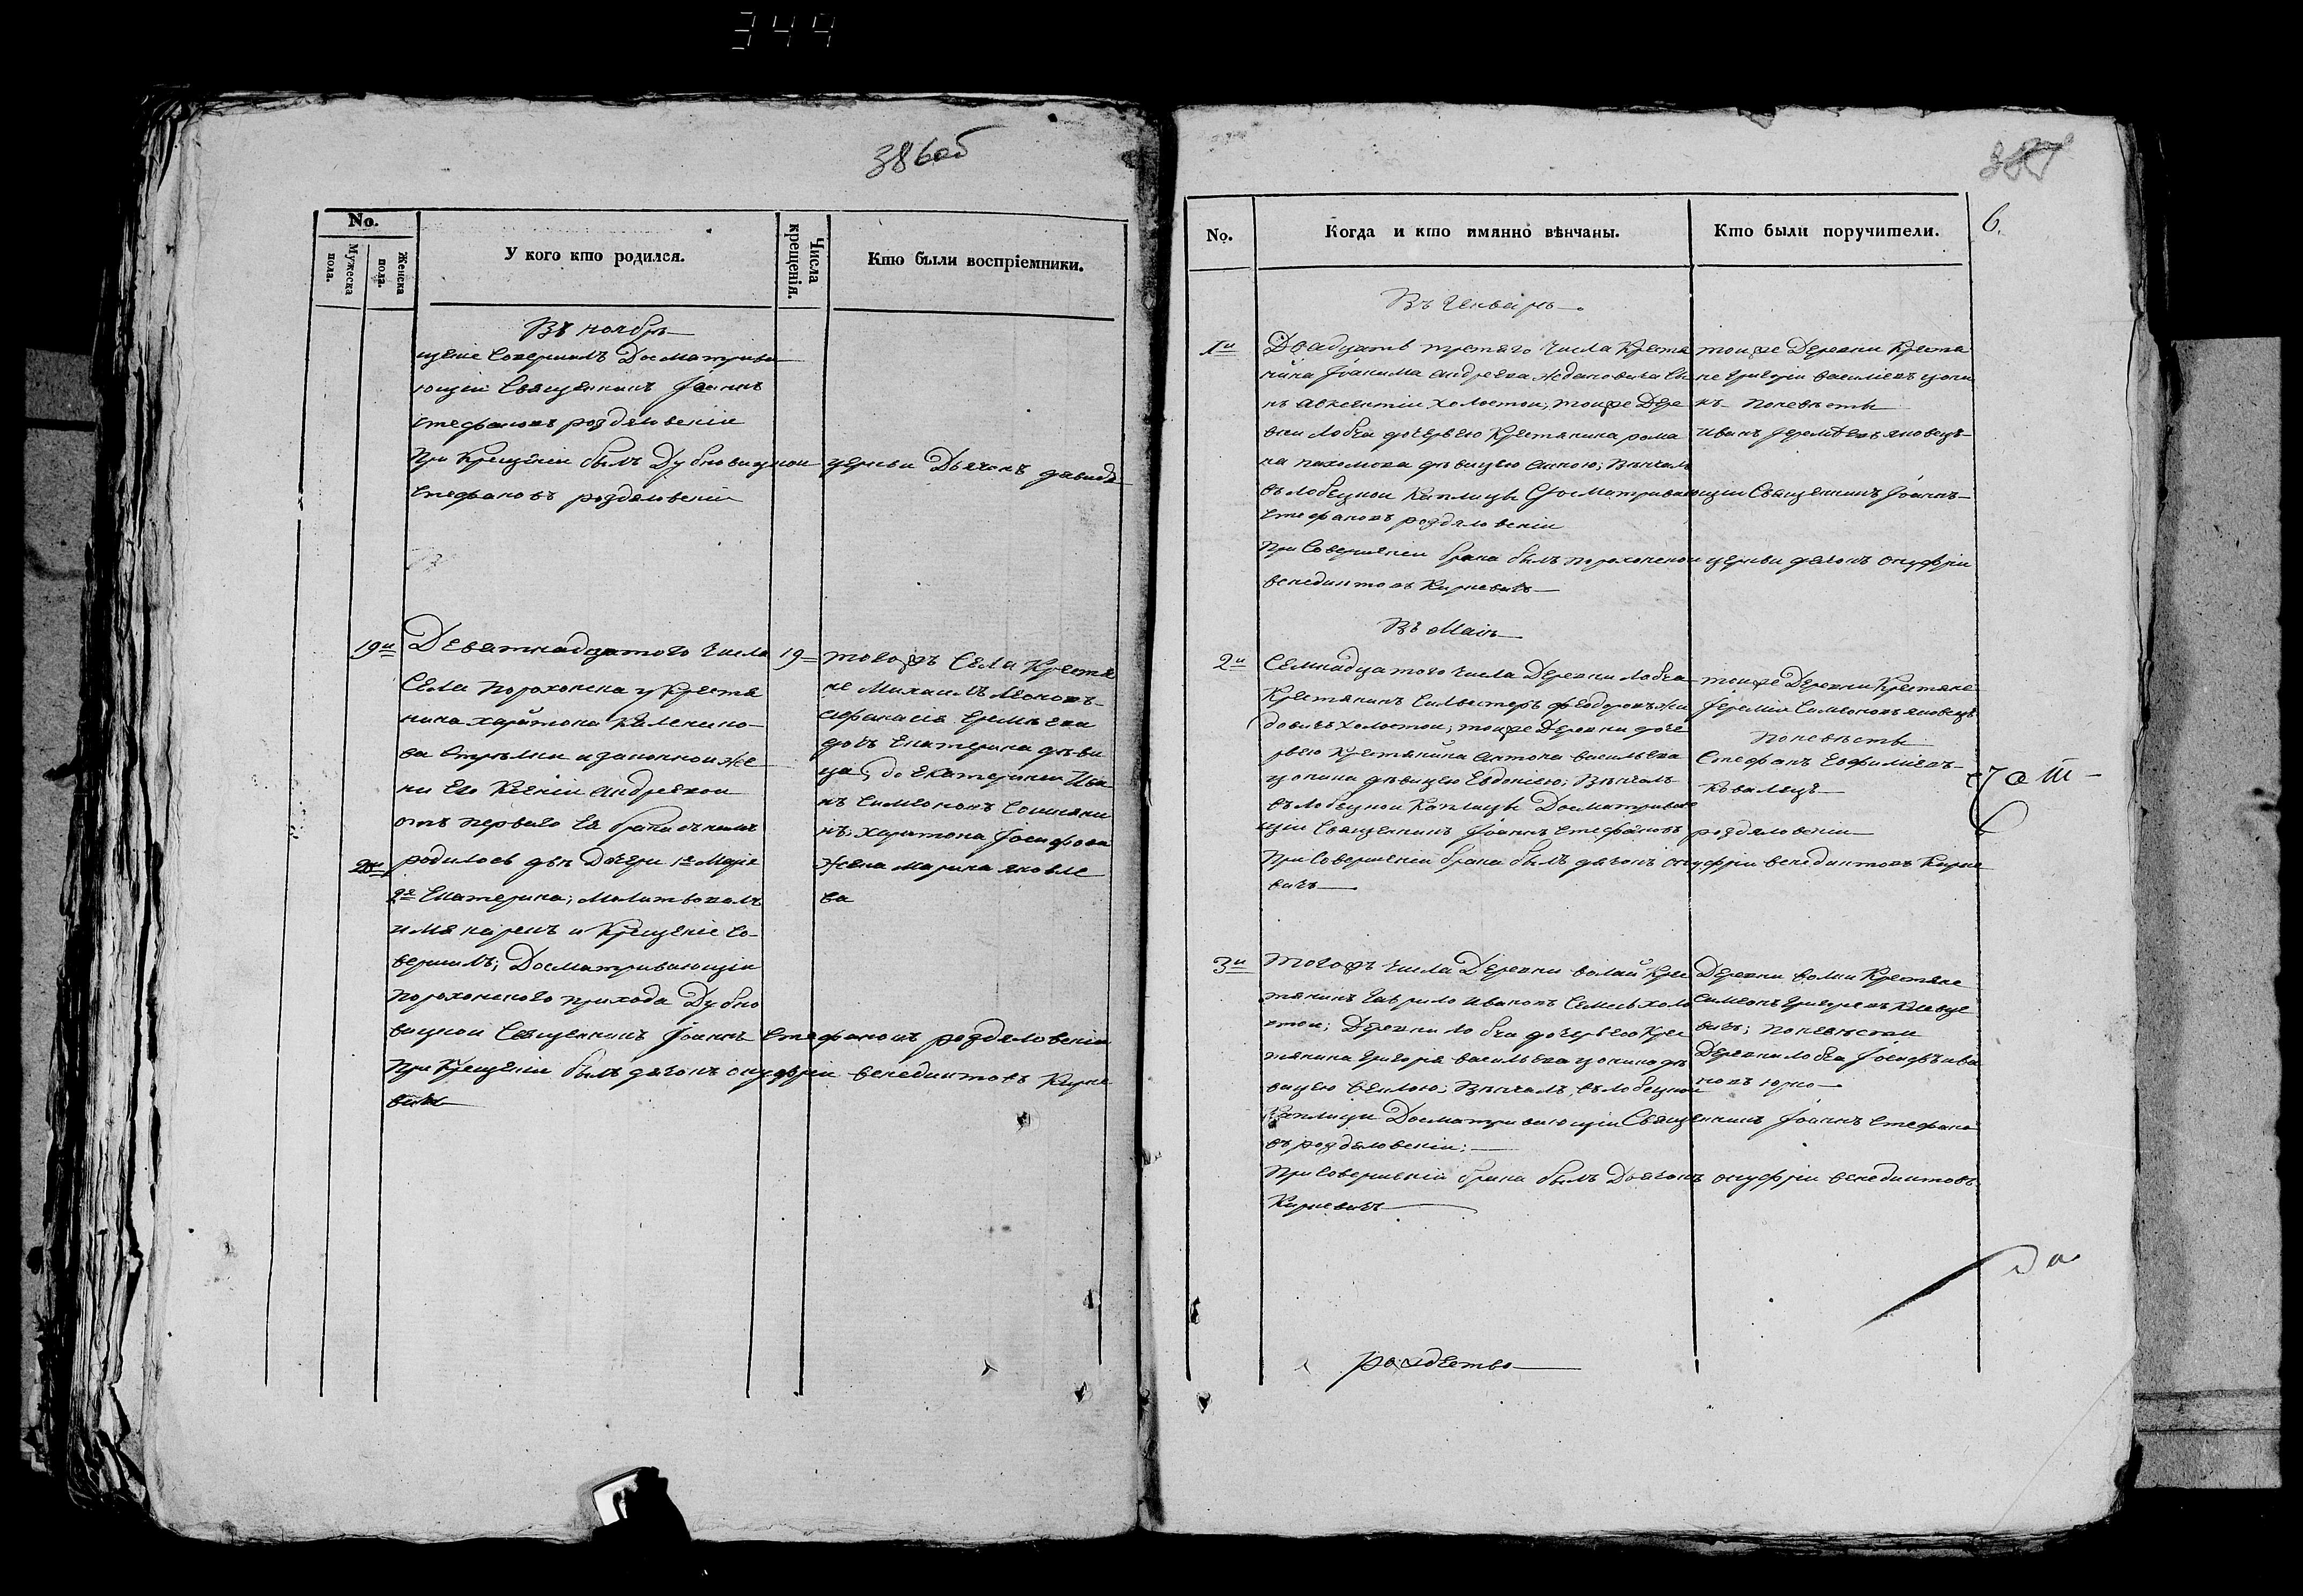 344
386об
No.
Мужеска пола.
Женска пола.
У кого кто родился.
Числа крещенія.
Кто были воспріемники.
Въ ноябрѣ
щеніе Совершилъ Досматрива
ющіи Священникъ Іоаннъ
Стефановъ роздяловскіи
При Крещеніи былъ Дубновицкои церкви Дьячокъ давидъ
Стефановъ роздяловскіи
19й Деветнадцатого Числа
Села порохонска у Крестя
нина харитона
и законнои же
ни Его Ксеніи андреевои
отъ перваго Ея брака съ нимъ
20 родилось двѣ Дочери 1е Марія
2е Екатерина; Молитвовалъ
имя нарекъ и Крещеніе Со
вершилъ; Досматривающіи
порохонского прихода Дубно
вицкои Священникъ Іоаннъ Стефановъ роздяловскіи
При Крещеніи былъ дячокъ онуфріи венедиктовъ Кирке
вичъ
19 того жъ Села Крестя
не Михаилъ
дочъ Екатерина дѣви
ца, до Екатерини Ива
нъ Симеоновъ
харитона Іосифова
Жена Марина яковле
ва
387
6.
No.
Когда и кто имянно вѣнчаны.
Кто были поручители.
Въ Генварѣ
1й Двадцать третяго Числа Крестя
нина Іоакима андреева Ждановича Сы
нъ авксентіи холостои, тои же Дере
вни Лобча дочерью Крестянина рома
на пахомова дѣвицею анною; Вѣнчалъ
въ лобецкои Каплицы Досматривающіи Священникъ Іоаннъ
Стефановъ роздяловскіи
При Совершеніи брака былъ порохонскои церкви дячокъ онуфріи
венедиктовъ Киркевичъ
тои же Деревни Крестя
не Григоріи василіевъ цопи
къ По невѣсты
иванъ яковецъ
Въ Маіѣ
2й Семнадцатого Числа Деревни Лобча
Крестянинъ Силвестеръ феодоровъ Жи
довичъ холостои, тои же Деревни доче
рью Крестянина антона васильева
цопика дѣвицею Евдокіею; Вѣнчалъ
въ лобецкои Каплицы Досматриваю
щіи Священникъ Іоаннъ Стефановъ роздяловскіи
При Совершеніи брака былъ дячокъ онуфріи венедиктовъ Кирке
вичъ
тои же Деревни Крестяне
Іеремія Симеоновъ яковецъ
По невѣсты
Стефанъ Евфиміевъ
Ковалецъ
3й Того жъ Числа Деревни волки Крес
тянинъ Гаврило Ивановъ холо
стои; Деревни Лобча дочерью Крес
тянина Григорія васильева цопика дѣ
вицею Вѣнчалъ въ лобецкои
Каплици Досматривающіи Священникъ Іоаннъ Стефано
въ роздяловскіи;
При Совершеніи брака былъ Дьячокъ онуфріи венедиктовъ
Киркевичъ
Деревни волки Крестяне
Симеонъ Григоревъ
по невѣсти
Деревни Лобча Іосифъ ива
новъ
рождество